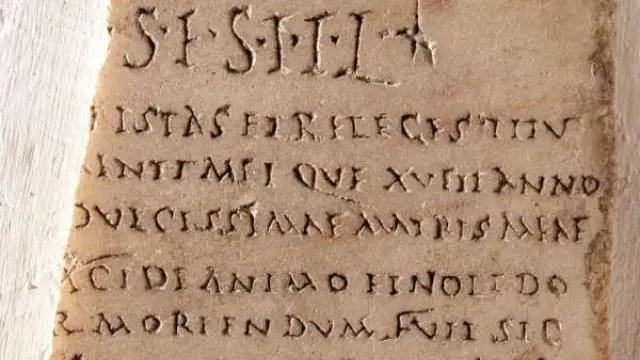 S·E·S·T·T·L·
ISTAS ET RELEGES TITV
MEI QVE XVIII ANNO
DVLCISSIMAE MATRIS MEAE
XCIDE ANIMO ET NOLI DO
R MORIENDVM FVIT SIC